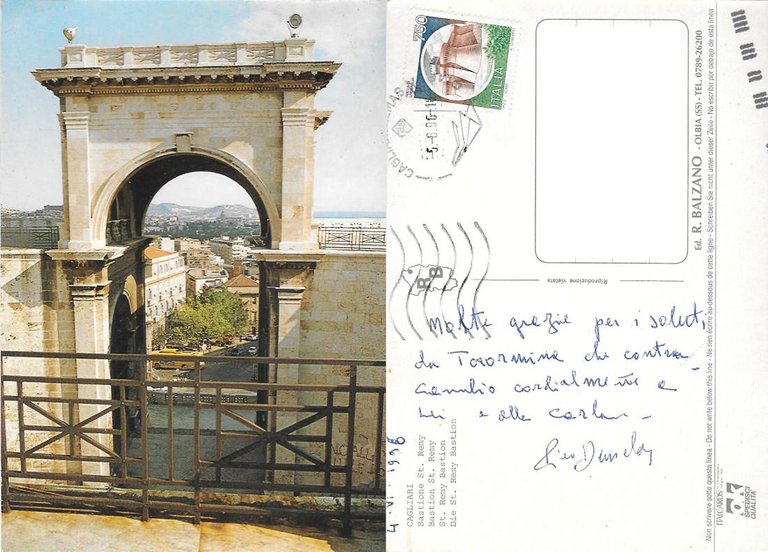 750
ITALIA
CAGLI
MAS
Molte grazie per i saluti
da Taormina che contra
cambio cordialmente a
Lei e alla
4 . VI . 1996
CAGLIARI
Bastione St. Remy
Bastion St. Remy
St. Remy Bastion
Die St. Remy Bastion
Riproduzione vietata
Ed. R. BALZANO - OLBIA (SS) - TEL. 0789-26200
Non scrivere sotto questa linea - Do not write below this line - Ne rien écrire au-dessous de cette ligne - Schreiben Sie nicht unter dieser Zeile - No escribir por debajo de esta linea
ITALCARDS
SPEDISCI
QUALITÀ